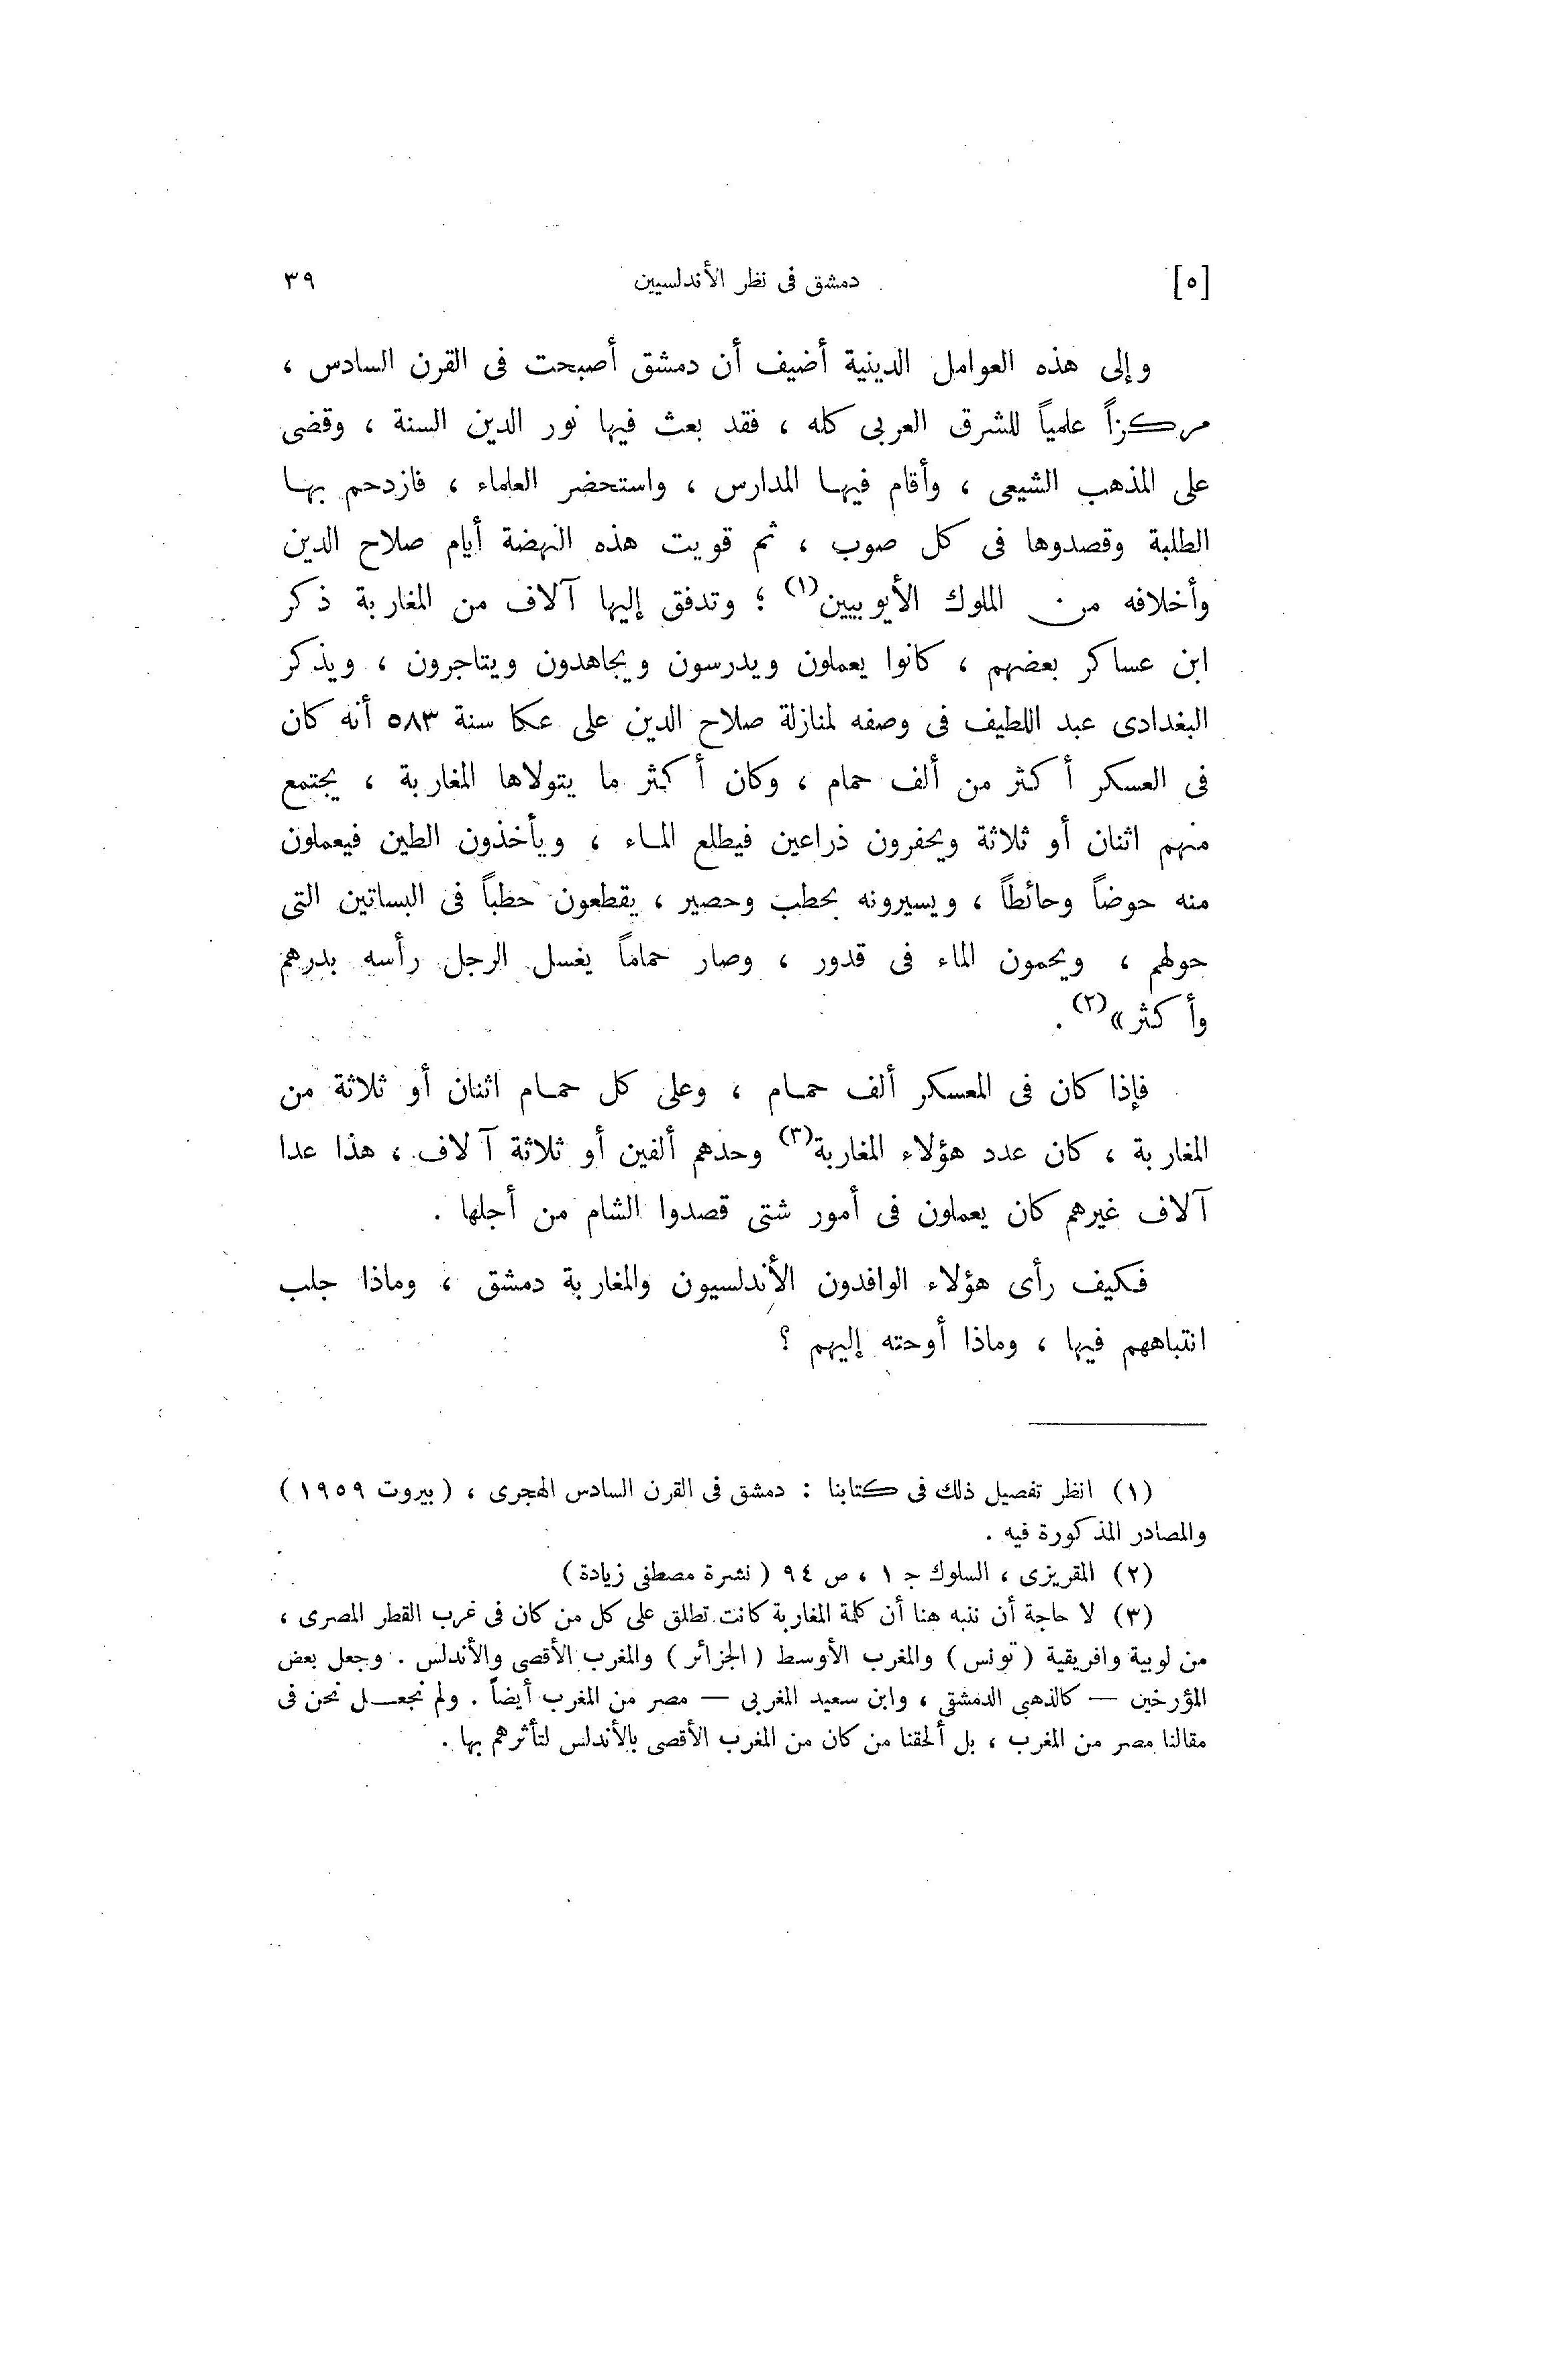 [٥] دمشق فى نظر الأندلسيين ٣٩
وإلى هذه العوامل الدينية أضيف أن دمشق أصبحت فى القرن السادس ،
مركزاً علمياً للشرق العربى كله ، فقد بعث فيها نور الدين السنة ، وقضى
على المذهب الشيعى ، وأقام فيها المدارس ، واستحضر العلماء ، فازدحم بها
الطلبة وقصدوها فى كل صوب ، ثم قويت هذه النهضة أيام صلاح الدين
وأخلافه من الملوك الأيوبيين(١) ؛ وتدفق إليها آلاف من المغاربة ذكر
ابن عساكر بعضهم ، كانوا يعملون ويدرسون ويجاهدون ويتاجرون ، ويذكر
البغدادى عبد اللطيف فى وصفه لمنازلة صلاح الدين على عكا سنة ٥٨٣ أنه كان
فى العسكر أكثر من ألف حمام ، وكان أكثر ما يتولاها المغاربة ، يجتمع
منهم اثنان أو ثلاثة ويحفرون ذراعين فيطلع الماء ، ويأخذون الطين فيعملون
منه حوضاً وحائطاً ، ويسيرونه بحطب وحصير ، يقطعون حطباً فى البساتين التى
حولهم ، ويحمون الماء فى قدور ، وصار حماماً يغسل الرجل رأسه بدرهم
وأكثر»(٢) .
فإذا كان فى المعسكر ألف حمام ، وعلى كل حمام اثنان أو ثلاثة من
المغاربة ، كان عدد هؤلاء المغاربة(٣) وحدهم ألفين أو ثلاثة آلاف ، هذا عدا
آلاف غيرهم كان يعملون فى أمور شتى قصدوا الشام من أجلها .
فكيف رأى هؤلاء الوافدون الأندلسيون والمغاربة دمشق ، وماذا جلب
انتباههم فيها ، وماذا أوحته إليهم ؟
(١) انظر تفصيل ذلك فى كتابنا : دمشق فى القرن السادس الهجرى ، (بيروت ١٩٥٩)
والمصادر المذكورة فيه .
(٢) المقريزى ، السلوك ج ١ ، ص ٩٤ (نشرة مصطفى زيادة)
(٣) لا حاجة أن ننبه هنا أن كلمة المغاربة كانت تطلق على كل من كان فى غرب القطر المصرى ،
من لوبية وافريقية (تونس) والمغرب الأوسط (الجزائر) والمغرب الأقصى والأندلس . وجعل بعض
المؤرخين — كالذهبى الدمشقى ، وابن سعيد المغربى — مصر من المغرب أيضاً . ولم نجعل نحن فى
مقالنا مصر من المغرب ، بل ألحقنا من كان من المغرب الأقصى بالأندلس لتأثرهم بها .